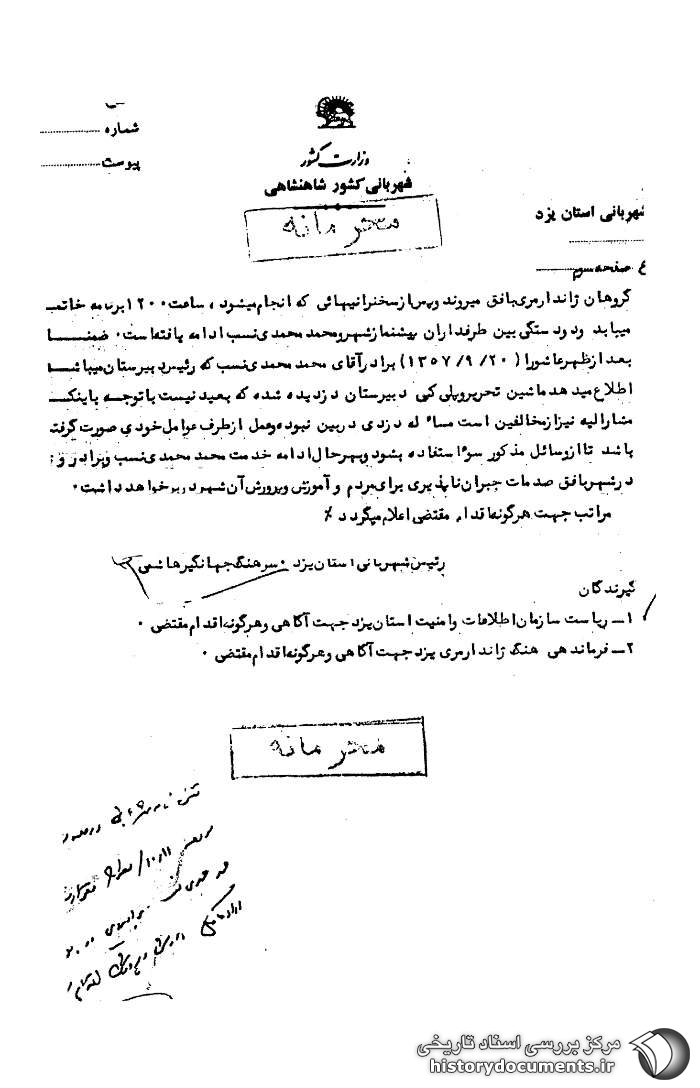 شماره
پیوست
وزارت کشور
شهربانی کشور شاهنشاهی
محرمانه
شهربانی استان یزد
صفحه سوم
گروهان ژاندارمری بافق میروند و پس از سخنرانیهائی که انجام میشود، ساعت ۱۲۰۰ برنامه خاتمه
مییابد و دودستگی بین طرفداران پیشنماز شهر و محمد محمدی نسب ادامه یافته است. ضمنا
بعد از ظهر عاشورا (۲۰/۹/۱۳۵۷) برادر آقای محمد محمدی نسب که رئیس دبیرستان میباشد
اطلاع میدهد ماشین تحریر و پلی کپی دبیرستان دزدیده شده که بعید نیست با توجه باینکه
مشارالیه نیز از مخالفین است مساله دزدی در بین نبوده و عمل از طرف عوامل خودی صورت گرفته
باشد تا از وسائل مذکور سوء استفاده بشود و بهرحال ادامه خدمت محمد محمدی نسب و برادر و
در شهر بافق صدمات جبران ناپذیری برای مردم و آموزش و پرورش آن شهر در بر خواهد داشت.
مراتب جهت هرگونه اقدام مقتضی اعلام میگردد ٪
رئیس شهربانی استان یزد. سرهنگ جهانگیر هاشمی
گیرندگان
۱ـ ریاست سازمان اطلاعات و امنیت استان یزد جهت آگاهی و هرگونه اقدام مقتضی.
۲ـ فرماندهی هنگ ژاندارمری یزد جهت آگاهی و هرگونه اقدام مقتضی.
محرمانه
مرکز بررسی اسناد تاریخی
historydocuments.ir